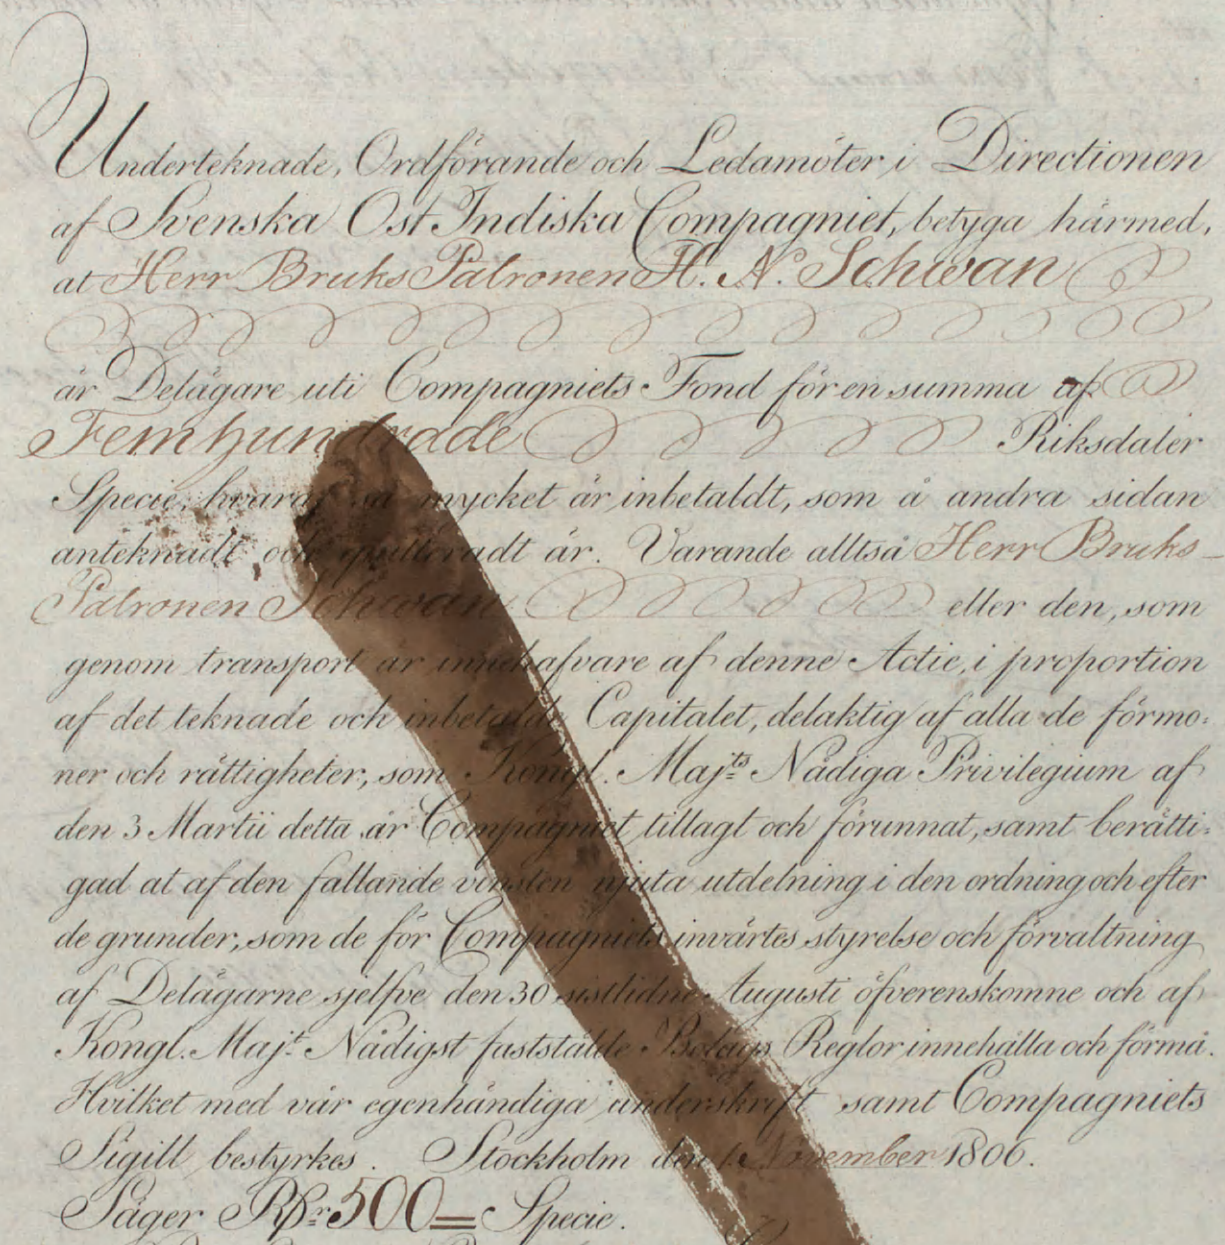 Underteknade, Ordförande och Ledamöter i Directionen
af Svenska Ost Indiska Compagniet, betyga härmed,
at Herr Bruks Patronen H. Ns. Schwan
är Delägare uti Compagniets Fond för en summa af
Femhundrade Riksdaler
Specie, hvaraf så mycket är inbetaldt, som å andra sidan
anteknadt och quitteradt är. Varande alltså Herr Bruks-
Patronen Schwan eller den, som
genom transport är innehafvare af denne Actie, i proportion
af det teknade och inbetalde Capitalet, delaktig af alla de förmo:
ner och rättigheter, som Kongl. Majts Nådiga Privilegium af
den 3 Martii detta år Compagniet tillagt och förunnat, samt berätti:
gad at af den fallande vinsten njuta utdelning i den ordning och efter
de grunder, som de för Compagniets invärtes styrelse och förvaltning
af Delägarne sjelfve den 30 sistlidne Augusti öfverenskomne och af
Kongl. Majt. Nådigst fastställde Bolags Reglor innehålla och förmå.
Hvilket med vår egenhändiga underskrift samt Compagniets
Sigill bestyrkes. Stockholm den 1. November 1806.
Säger Rdr 500 = Specie.